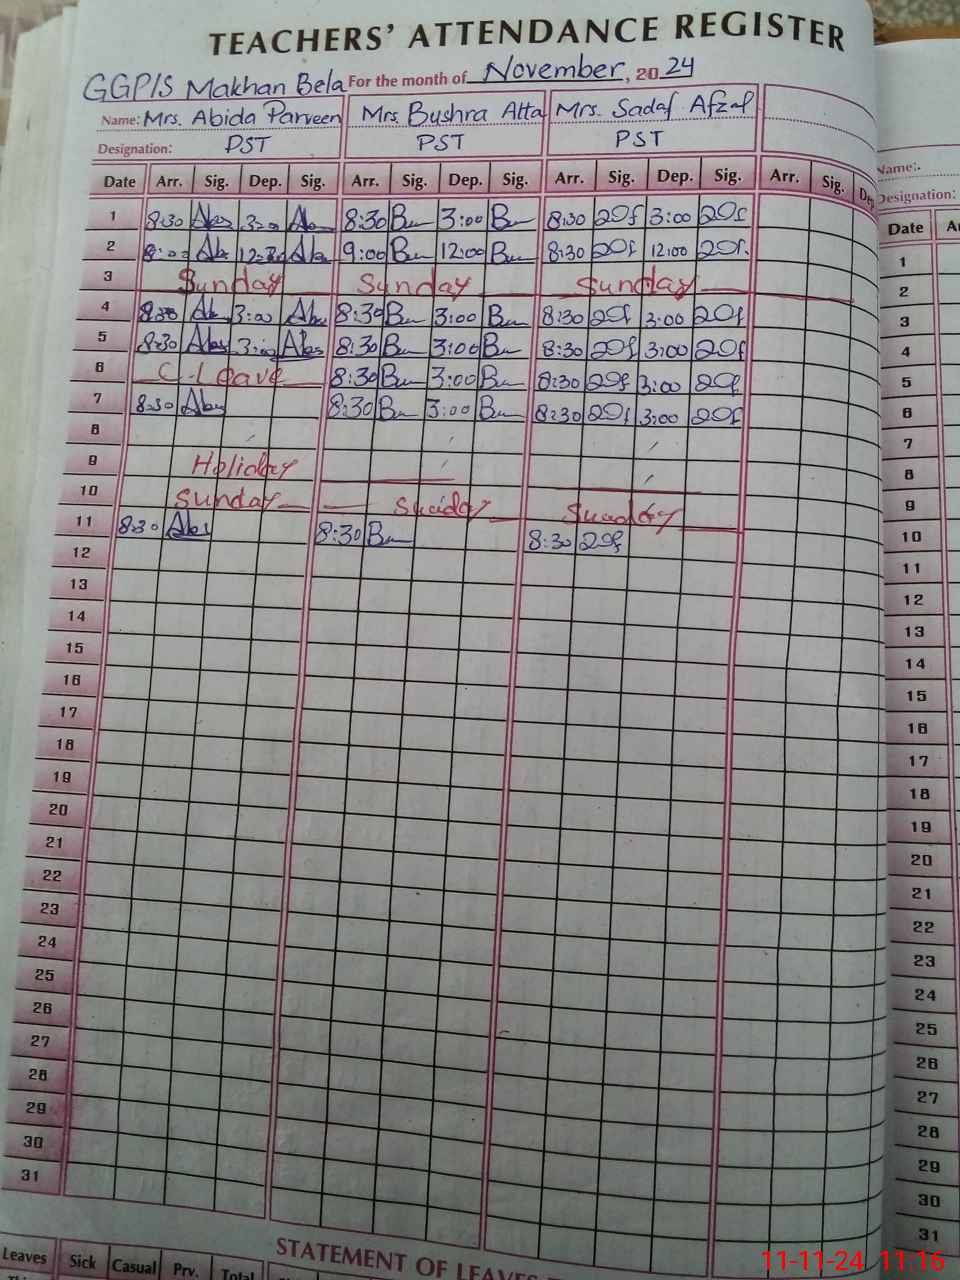 TEACHERS' ATTENDANCE REGISTER
GGPIS Makhan Bela For the month of November, 2024
Name: Mrs. Abida Parveen Mrs. Bushra Atta Mrs. Sadaf Afzal
Designation: PST PST PST
Date Arr. Sig. Dep. Sig. Arr. Sig. Dep. Sig. Arr. Sig. Dep. Sig. Arr. Sig. Dep
1 8:30 3:00 8:30 3:00 8:30 3:00
2 8:00 9:00 12:00 8:30 12:00
3 Sunday Sunday Sunday
4 8:30 3:00 8:30 3:00 8:30 3:00
5 8:30 3:00 8:30 3:00 8:30 3:00
6 C-Leave 8:30 3:00 8:30 3:00
7 8:30 8:30 3:00 8:30 3:00
8
9 Holiday
10 Sunday Sunday Sunday
11 8:30 8:30 8:30
12
13
14
15
16
17
18
19
20
21
22
23
24
25
26
27
28
29
30
31
STATEMENT OF LEAVES
Leaves Sick Casual Prv. Total
Name:
Designation:
Date
1
2
3
4
5
6
7
8
9
10
11
12
13
14
15
16
17
18
19
20
21
22
23
24
25
26
27
28
29
30
31
11-11-24 11:16